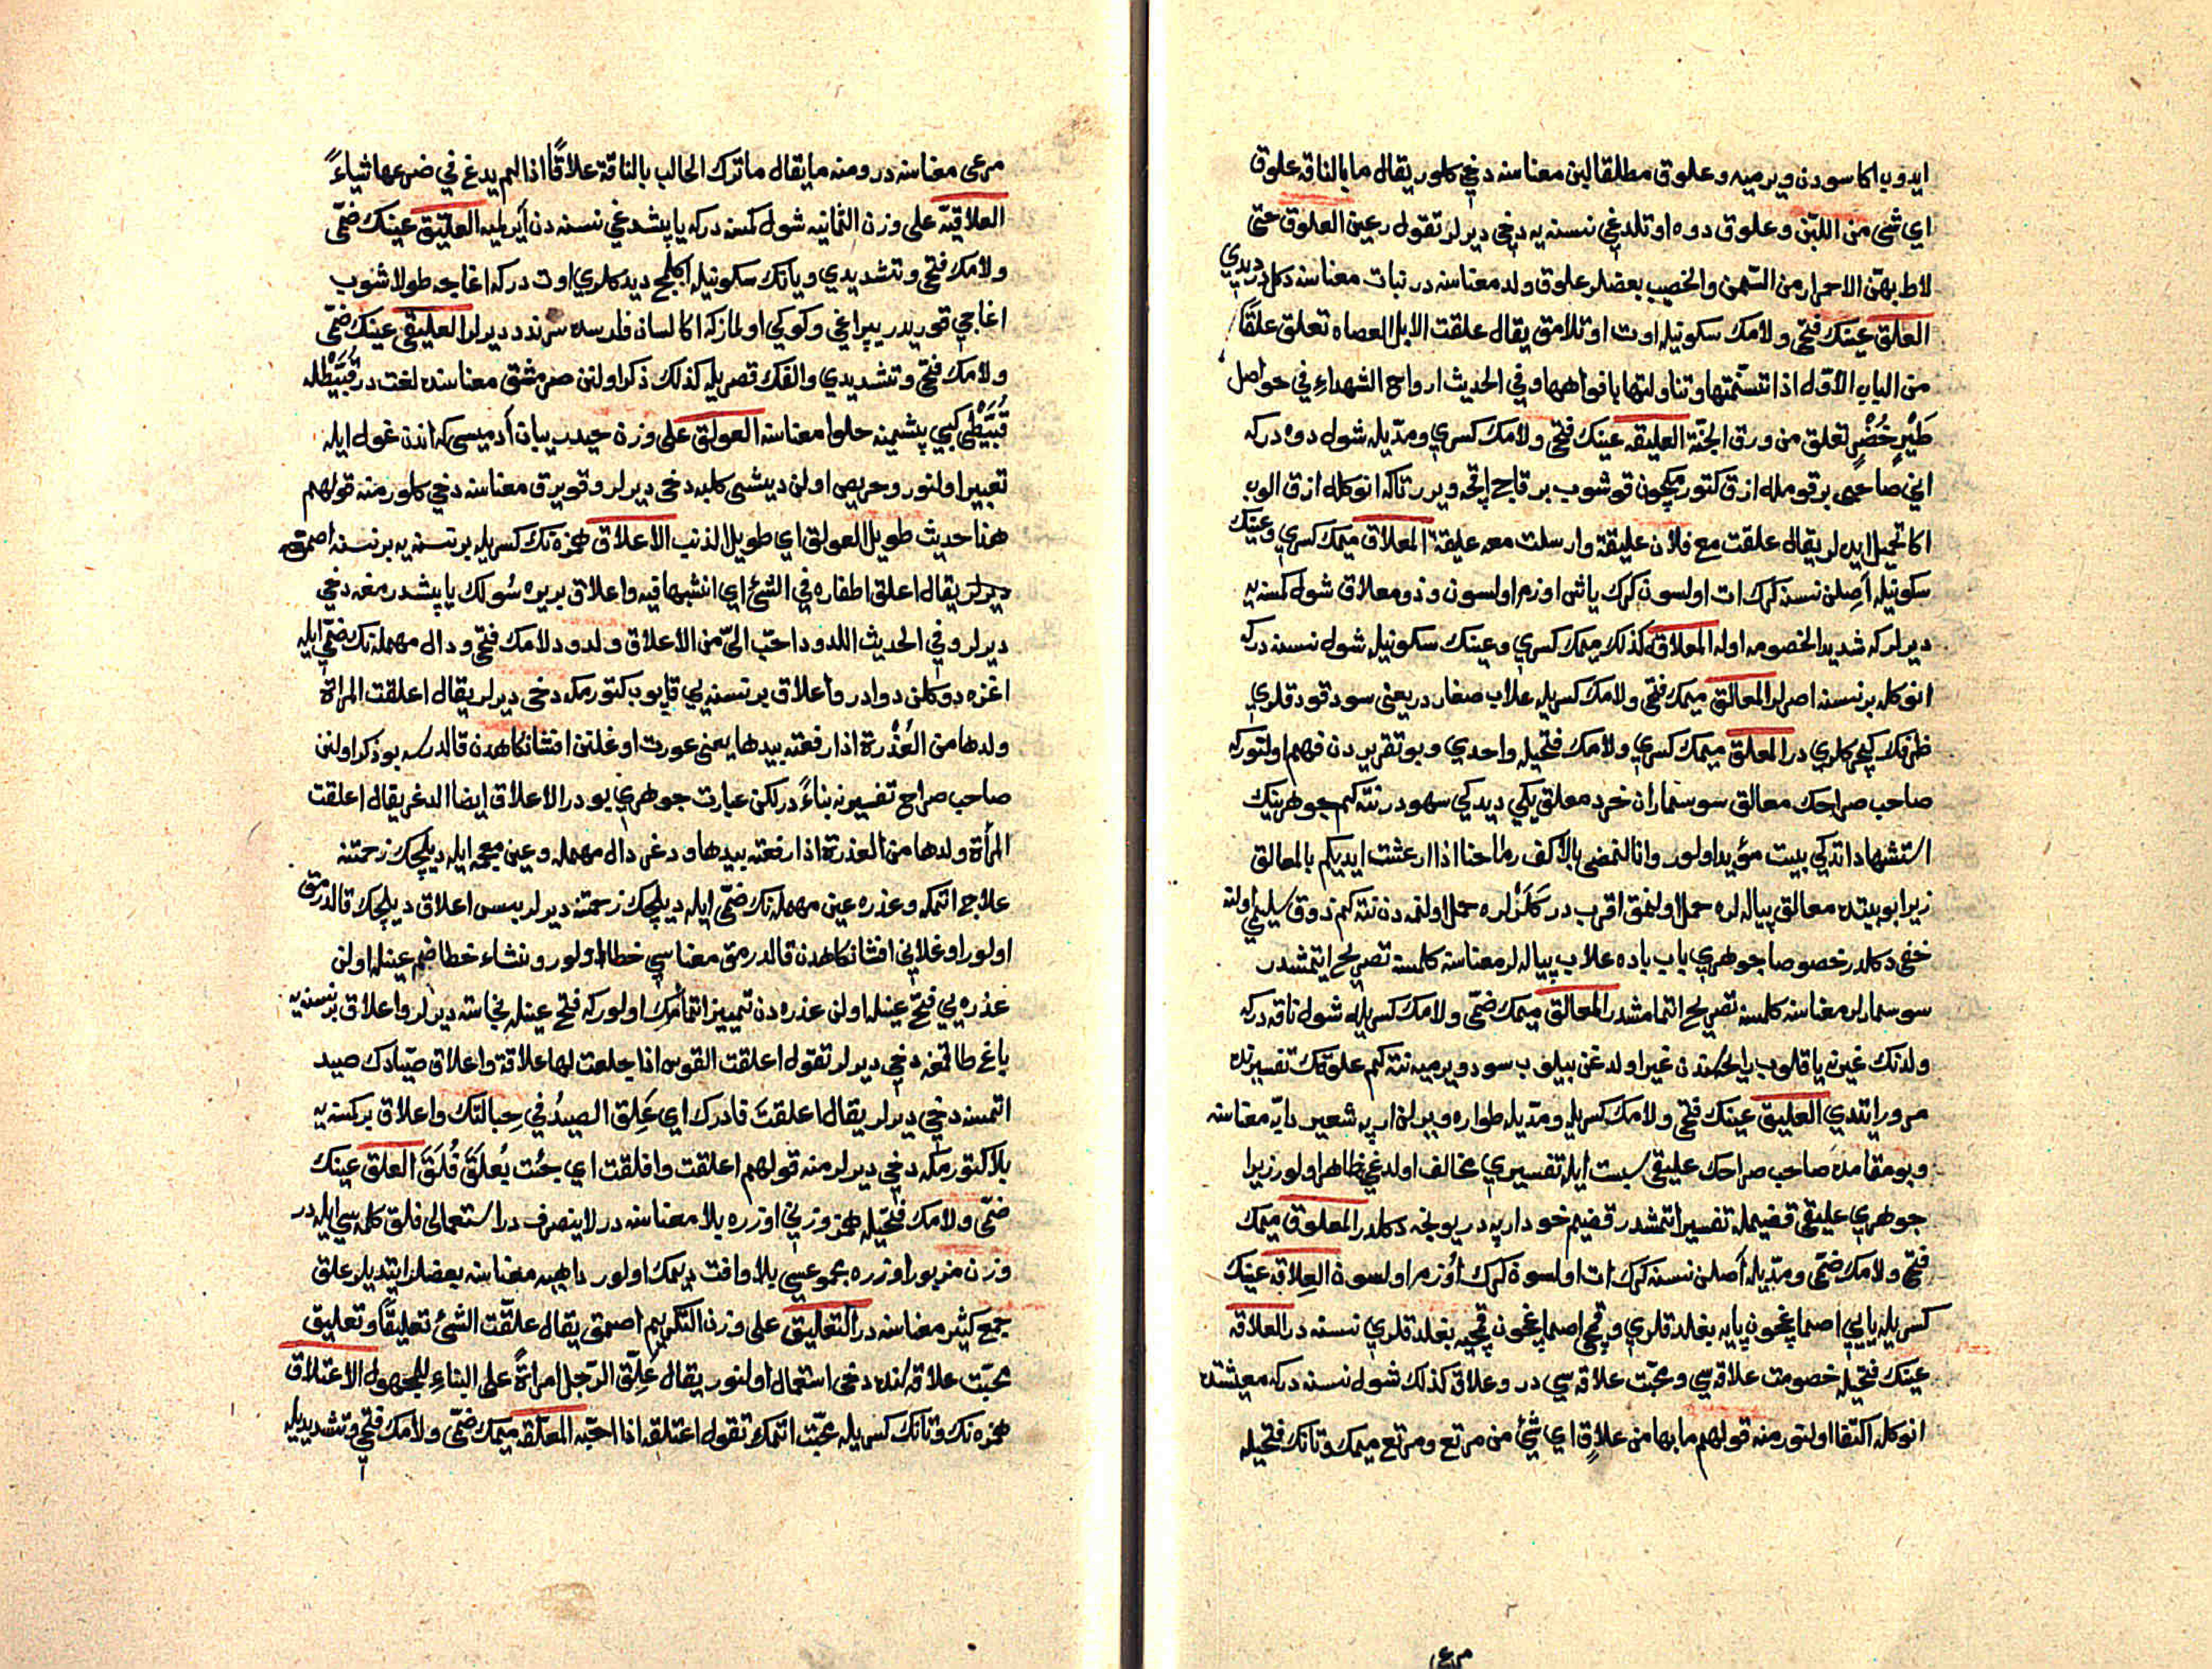 ايدوب اكا سودن ويرميه وعلوق مطلقا لبن معناسنه دخي كلور يقال ما بالناقه علوق
اي شئ من اللبن وعلوق دوه اوتلدغي نسنه يه دخي ديرلر تقول رعين العلوق حتى
لاط بهن الاحمرار من السمن والخصب بعضلر علوق ولد معناسنه در نبات معناسنه دكل ديدي
العلق عينك فتحي ولامك سكونيله اوت اوتلامق يقال علقت الابل العصاه تعلق علقا
من الباب الاول اذا تسنمتها وتناولتها بافواهها وفي الحديث ارواح الشهداء في حواصل
طير خضر تعلق من ورق الجنة العليقه عينك فتحي ولامك كسري ومديله شول دوه دركه
اني صاحبي بر قومله ازق كتورمكچون قوشوب بر قاچ اقچه ويرر تاكه انوكله ازق الوب
اكا تحميل ايده لر يقال علقت مع فلان عليقة وارسلت معه عليقة المعلاق ميمك كسري وعينك
سكونيله اصلن نسنه كرك ات اولسون كرك ياش اوزم اولسون وذو معلاق شول كمسنه يه
ديرلر كه شديد الخصومه اوله المعلاقه كذلك ميمك كسري وعينك سكونيله شول نسنه دركه
انوكله بر نسنه اصرلر المعالق ميمك فتحي ولامك كسريله علاب صغار در يعني سود قودقلري
ظرفك كچركلري در المعلق ميمك كسري ولامك فتحيله واحدي وبو تقريردن فهم اولنور كه
صاحب صراحك معالق سوسنماران خرد معلق يكي ديدكي سهودر نته كم جوهرينك
استشهاد اتدكي بيت مؤيد اولور وانا لنمضي بالاكف رماحنا اذا ارعشت ايديكم بالمعالق
زيرا بو بيتده معالق پياله لره حمل اولنمق اقربدر كلزلره حمل اولنمه دن نته كم ذوق سليمي اولنه
خفي دكلدر خصوصا جوهري باب باده علاب پياله لر معناسنه كلمسنه تصريح ايتمشدر
سوسمارلر معناسنه كلمسنه تصريح اتمامشدر المعالق ميمك ضمي ولامك كسريله شول ناقه دركه
ولدنك غيرنه يا قلوب رايحه سندن غير اولدغن بيلوب سود ويرميه نته كم علوقك تفسيرنده
مرور ايتدي العليق عينك فتحي ولامك كسريله ومديله طواره ويريلن ارپه شعير دابه معناسنه
وبو مقامده صاحب صراحك عليقي سبست ايله تفسيري مخالف اولدغي ظاهر اولور زيرا
جوهري عليقي قضيمله تفسير اتمشدر قضيم خود ارپه در يونجه دكلدر المعلوق ميمك
فتحي ولامك ضمي ومديله اصلن نسنه كرك ات اولسون كرك اوزم اولسون العلاقه عينك
كسريله يايي اصماغچون يايه بغلدقلري وقمچي اصماغچون قمچيه بغلدقلري نسنه در العلاقه
عينك فتحيله خصومت علاقه سي ومحبت علاقه سي در وعلاق كذلك شول نسنه دركه معيشتده
انوكله اكتفا اولنور منه قولهم ما بها من علاق اي شئ من مرتع ومرتع ميمك وتانك فتحيله
مرعى
مرعى معناسنه در ومنه ما يقال ما ترك الحالب بالناقة علاقا اذا لم يدع في ضرعها شياء
العلاقيه على وزن الثمانيه شول كمسنه دركه ياپشدغي نسنه دن آيرلميه العليق عينك ضمي
ولامك فتحي وتشديدي ويانك سكونيله اكلج ديدكلري اوت دركه اغاجه طولاشوب
اغاجي قوريدر يپراغي وكوكي اولماز كه اكا لسان فلرسده سرند ديرلر العليقى عينك ضمي
ولامك فتحي وتشديدي والفك قصريله كذلك ذكر اولنن صرمشق معناسنده لغت در قبيطله
قبيطى كبي پشيمنه حلوا معناسنه العولق على وزن حيدر بيابان آدميسي كه اندن غول ايله
تعبير اولنور وحريص اولن ديشي كلبه دخي ديرلر وقويرق معناسنه دخي كلور منه قولهم
هذا حديث طويل العولق اي طويل الذنب الاعلاق همزه نك كسريله بر نسنه يه بر نسنه اصمغه
ديرلر يقال اعلق اظفاره في الشئ اي انشبها فيه واعلاق بريره سولك ياپشدرمغه دخي
ديرلر وفي الحديث اللدود احب الي من الاعلاق ولدود لامك فتحي ودال مهمله نك ضمي ايله
اغزه دوكلن دوادر واعلاق بر نسنه يي قاپوب كتورمكه دخي ديرلر يقال اعلقت المراة
ولدها من العذرة اذا رفعته بيدها يعني عورت اوغلنن افشانكاهدن قالدرسه بو ذكر اولنن
صاحب صراح تفسيرينه بناء در لكن عبارت جوهري بودر الاعلاق ايضا الدغر يقال اعلقت
المرأة ولدها من العذرة اذا رفعته بيدها ودغر دال مهمله وعين معجمه ايله ديلچك زحمتنه
علاج اتمكه وعذره عين مهمله نك ضمي ايله ديلچك زحمتنه ديرلر پس اعلاق ديلچك قالدرمق
اولور اوغلاني افشانكاهدن قالدرمق معناسي خطا اولور ومنشاء خطا ضم عينله اولن
عذره يي فتح عينله اولن عذره دن تمييز اتمامك اولور كه فتح عينله نجاسته ديرلر واعلاق بر نسنه يه
باغ طاقمغه دخي ديرلر تقول اعلقت القوس اذا جلعت لها علاقة واعلاق صيادك صيد
اتمسنه دخي ديرلر يقال اعلقت فادرك اي علق الصيد في حبالتك واعلاق بر كمسنه يه
بلا كتورمكه دخي ديرلر منه قولهم اعلقت وافلقت اي جئت بعلق فلق العلق عينك
ضمي ولامك فتحيله همز وزني اوزره بلا معناسنه در لا ينصرف در استعمالي فلق كلمه سي ايله در
وزن مزبور اوزره مجموعسي بلا وافت ديمك اولور داهيه معناسنه بعضلر ايتديلر علق
جمع كثير معناسنه در التعليق على وزن التكريم اصمق يقال علقت الشئ تعليقا وتعليق
محبت علاقه سنده دخي استعمال اولنور يقال علق الرجل امراة على البناء للمجهول الاعتلاق
همزه نك وتانك كسريله محبت اتمك تقول اعتلقه اذا احبه المعلقه ميمك ضمي ولامك فتحي وتشديديله